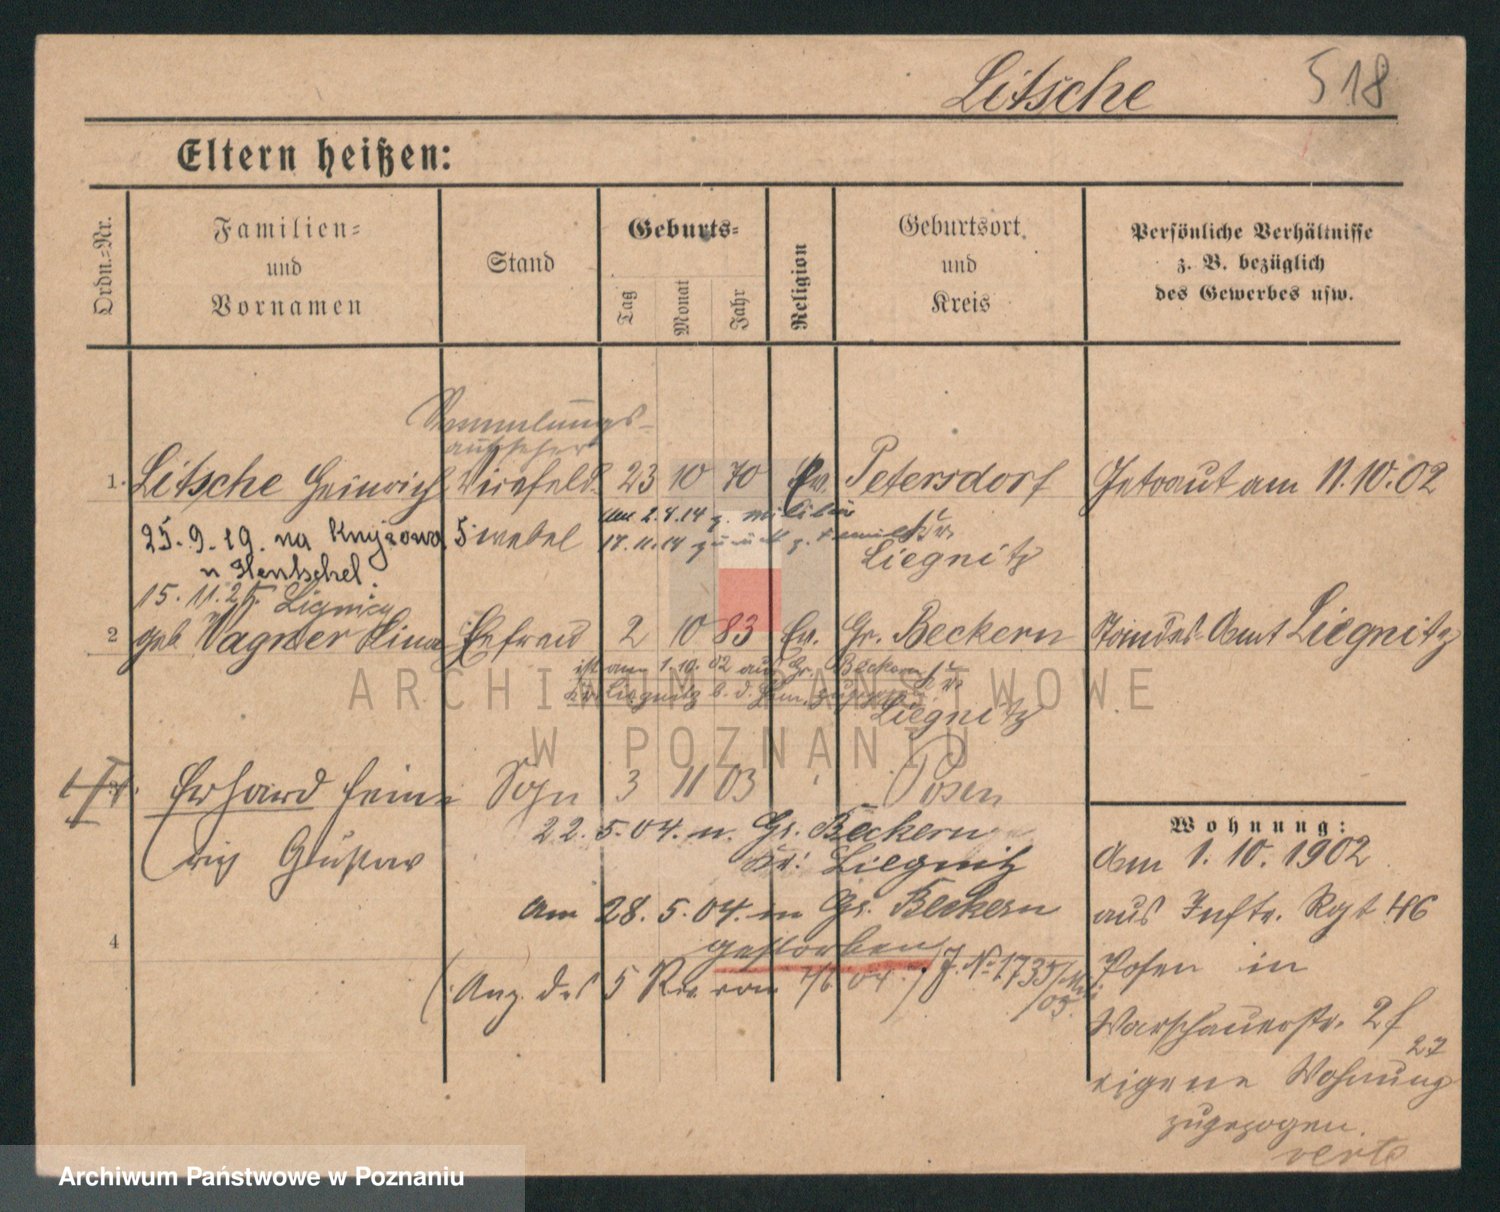 Litsche
518
Eltern heißen:
Ordn.-Nr.
Familien- und Vornamen
Stand
Geburts-
Tag
Monat
Jahr
Religion
Geburtsort und Kreis
Persönliche Verhältnisse z. B. bezüglich des Gewerbes usw.
Sammlungs-
aufseher
1. Litsche Heinrich 23 10 70 Ev. Petersdorf Getraut am 11.10.02
25.9.19. na
am 2.8.14 z. Militär
u Hentschel
Liegnitz
15.11.
2 geb Wagner Lina Ehefrau 2 10 83 Ev. Gr. Beckern Standes-Amt Liegnitz
ist am 1.10.02 aus Gr. Beckern
Kr. Liegnitz
Liegnitz
ARCHIWUM PAŃSTWOWE
W POZNANIU
Erhard Hein- Sohn 3 11 03 Posen
rich Gustav
22.5.04. n. Gr. Beckern
Kr: Liegnitz
am 28.5.04. in Gr. Beckern
gestorben
4
(Anz. des 5 Rev. vom 7/6 04.) J. No 1735
Wohnung:
Am 1.10.1902
aus Inftr. Rgt 46
Posen in
Warschauerstr. 2f
27
eigene Wohnung
zugezogen.
verte
Archiwum Państwowe w Poznaniu